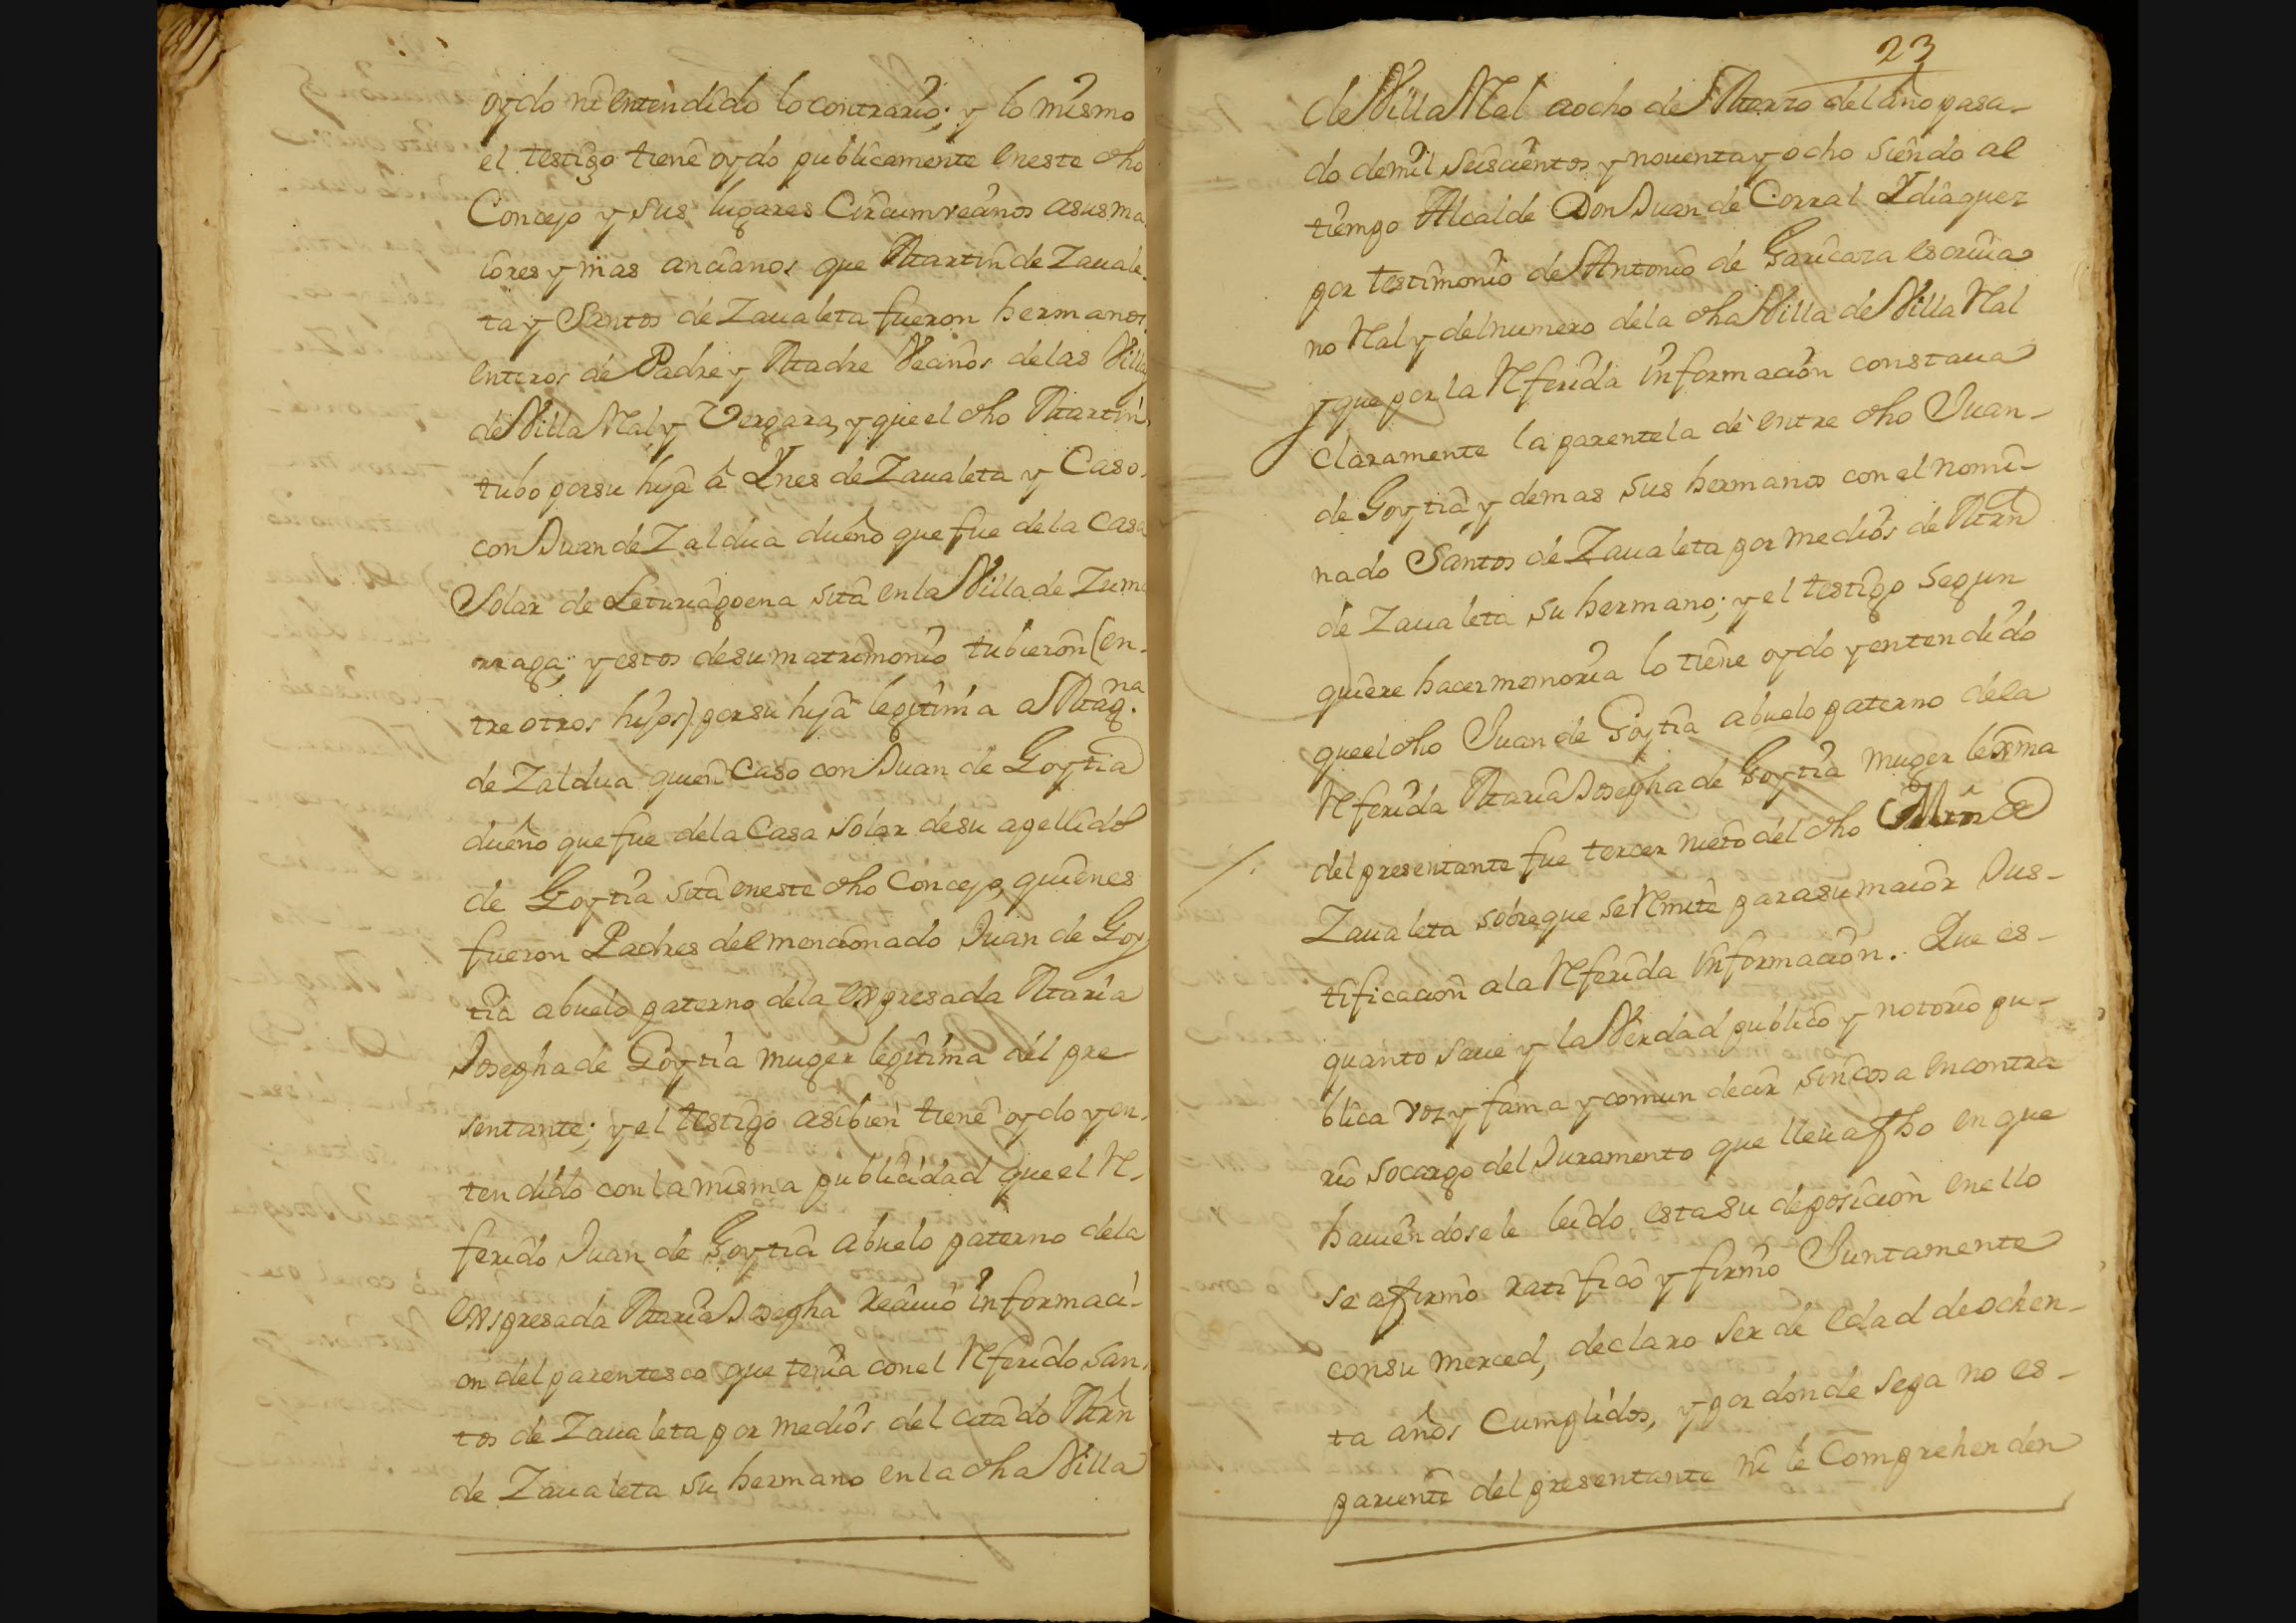 oydo ni entendido lo contrario; y lo mismo
el testigo tiene oydo publicamente en este dho
Concejo y sus lugares Circumvecinos a sus ma
iores y mas ancianos que Martin de Zauale-
ta y Santos de Zaualeta fueron hermanos
enteros de Padre y Madre Vecinos de las Villas
de Villa Real y Vergara, y que el dho Martin
tubo por su hija â Ynes de Zaualeta y Caso
con Juan de Zaldua dueño que fue de la Casa
Solar de Leturiagoena sita en la Villa de Zuma
rraga; y estos de su matrimonio tubieron (en-
tre otros hijos) por su hija legitima a Magna
de Zaldua quien Caso con Juan de Goytia
dueño que fue de la Casa solar de su apellido
de Goytia sita en este dho Concejo, quienes
fueron Padres del mencionado Juan de Goy
tia abuelo paterno de la expresada Maria
Josepha de Goytia muger legitima del pre
sentante; y el testigo asibien tiene oydo y en-
tendido con la misma publicidad que el Re-
ferido Juan de Goytia abuelo paterno de la
expresada Maria Josepha Reciuio informaci-
on del parentesco que tenia con el Referido San-
tos de Zaualeta por medios del citado Mrn
de Zaualeta su hermano en la dha Villa
23
de Villa Real a ocho de Marzo del año pasa-
do de mil seiscientos y nouenta y ocho siendo al
tiempo Alcalde Don Juan de Corral Ydiaquez
por testimonio de Antonio de Garicaza escriua
no Real y del numero de la dha Villa de Villa Real
y que por la Referida informacion constaua
claramente la parentela de entre dho Juan
de Goytia y demas sus hermanos con el nomi-
nado Santos de Zaualeta por medios de Mrn
de Zaualeta su hermano; y el testigo segun
quiere hacer memoria lo tiene oydo y entendido
que el dho Juan de Goytia abuelo paterno de la
Referida Maria Josepha de Goytia muger lexma
del presentante fue tercer nieto del dho Mrn de
Zaualeta sobre que se Remite para su maior Jus-
tificacion a la Referida informacion. Que es-
quanto saue y la Verdad publico y notorio pu-
blica voz y fama y comun decir sin cosa en contra
rio socargo del Juramento que lleua fho en que
hauiendosele leido esta su deposicion en ello
se afirmo ratifico y firmo Juntamente
con su merced, declaro ser de edad de ochen-
ta años Cumplidos, y por donde sepa no es-
pariente del presentante ni le Comprehenden